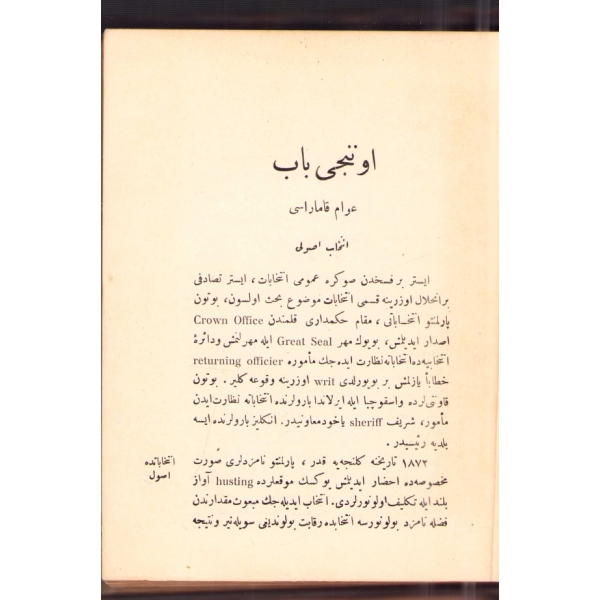 اوننجی باب
عوام قاماراسی
انتخاب اصولی
ایستر بر فسخدن صوکره عمومی انتخابات ، ایستر تصادفی
بر انحلال اوزرینه قسمی انتخابات موضوع بحث اولسون، بوتون
پارلمنتو انتخاباتی ، مقام حکمداری قلمندن Crown Office
اصدار ایدیلمش ، بویوك مهر Great Seal ایله مهرلنمش و دائرۀ
انتخابیه‌ده انتخاباته نظارت ایده‌جك مأموره returning officier
خطاباً یازلمش بر بویورلدی writ اوزرینه وقوعه کلیر . بوتون
قاونتی‌لرده واسقوچیا ایله ایرلاندا بارولرنده انتخاباته نظارت ایدن
مأمور، شریف sheriff یاخود معاونیدر. انکلیز بارولرنده ایسه
بلدیه رئیسیدر .
انتخاباتده اصول
١٨٧٢ تاریخنه کلنجه‌یه قدر ، پارلمنتو نامزدلری صورت
مخصوصه‌ده احضار ایدیلمش یوکسك موقعلرده husting آواز
بلند ایله تکلیف اولونورلردی. انتخاب ایدیله‌جك مبعوث مقدارندن
فضله نامزد بولونورسه انتخابده رقابت بولوندیغی سویله‌نیر ونتیجه